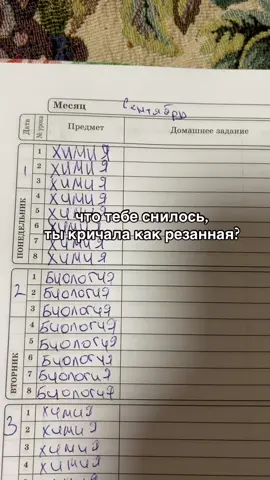 Месяц Сентябрь
Дата № урока Предмет Домашнее задание
ПОНЕДЕЛЬНИК
1
1 ХИМИЯ
2 ХИМИЯ
3 ХИМИЯ
4 ХИМИЯ
5 ХИМИЯ
что тебе снилось,
6 ХИМИЯ
ты кричала как резанная?
7 ХИМИЯ
8 ХИМИЯ
ВТОРНИК
2
1 БИОЛОГИЯ
2 БИОЛОГИЯ
3 БИОЛОГИЯ
4 БИОЛОГИЯ
5 БИОЛОГИЯ
6 БИОЛОГИЯ
7 БИОЛОГИЯ
8 БИОЛОГИЯ
3
1 ХИМИЯ
2 ХИМИЯ
3 ХИМИЯ
4 ХИМИЯ